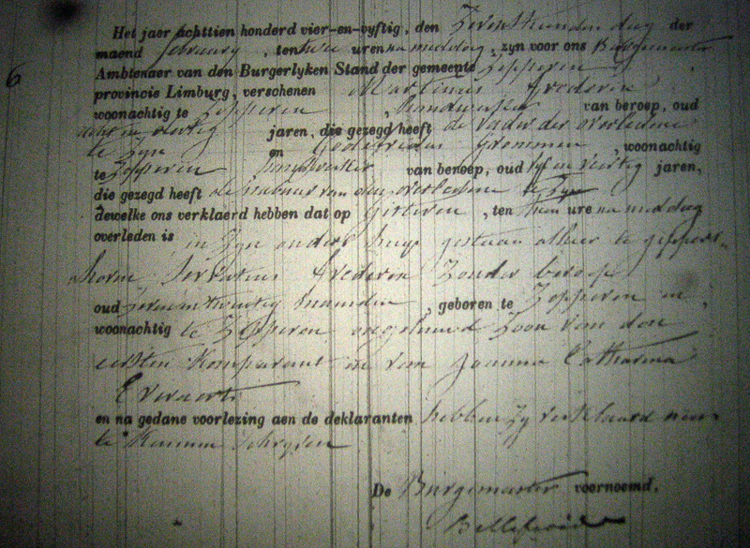 Het jaer achttien honderd vier-en-vyftig, den Zevenstienden dag der
maend february, ten twee uren na middag, zyn voor ons Burgemeester
6
Ambtenaer van den Burgerlyken Stand der gemeente Zepperen
provincie Limburg, verschenen Martinus Frederix
woonachtig te Zepperen, handwerker van beroep, oud
acht en veertig jaren, die gezegd heeft de vader der overledene
te Zyn en Godefridus Grommen, woonachtig
te Zepperen, van beroep, oud vyf en veertig jaren,
die gezegd heeft de nabuer van den overledene te Zyn
dewelke ons verklaerd hebben dat op gisteren, ten tien ure na middag
overleden is in Zyn ouders huys gestaen alhier te Zepperen
Servatius Frederix Zonder beroep
oud maenden, geboren te Zepperen en
woonachtig te Zepperen ongehuwd Zoon van den
eersten Komparant en van Joanna Catharina
Everaerts
en na gedane voorlezing aen de deklaranten hebben Zy verklaerd niet
te Kunnen Schryven
De Burgemeester voornoemd.